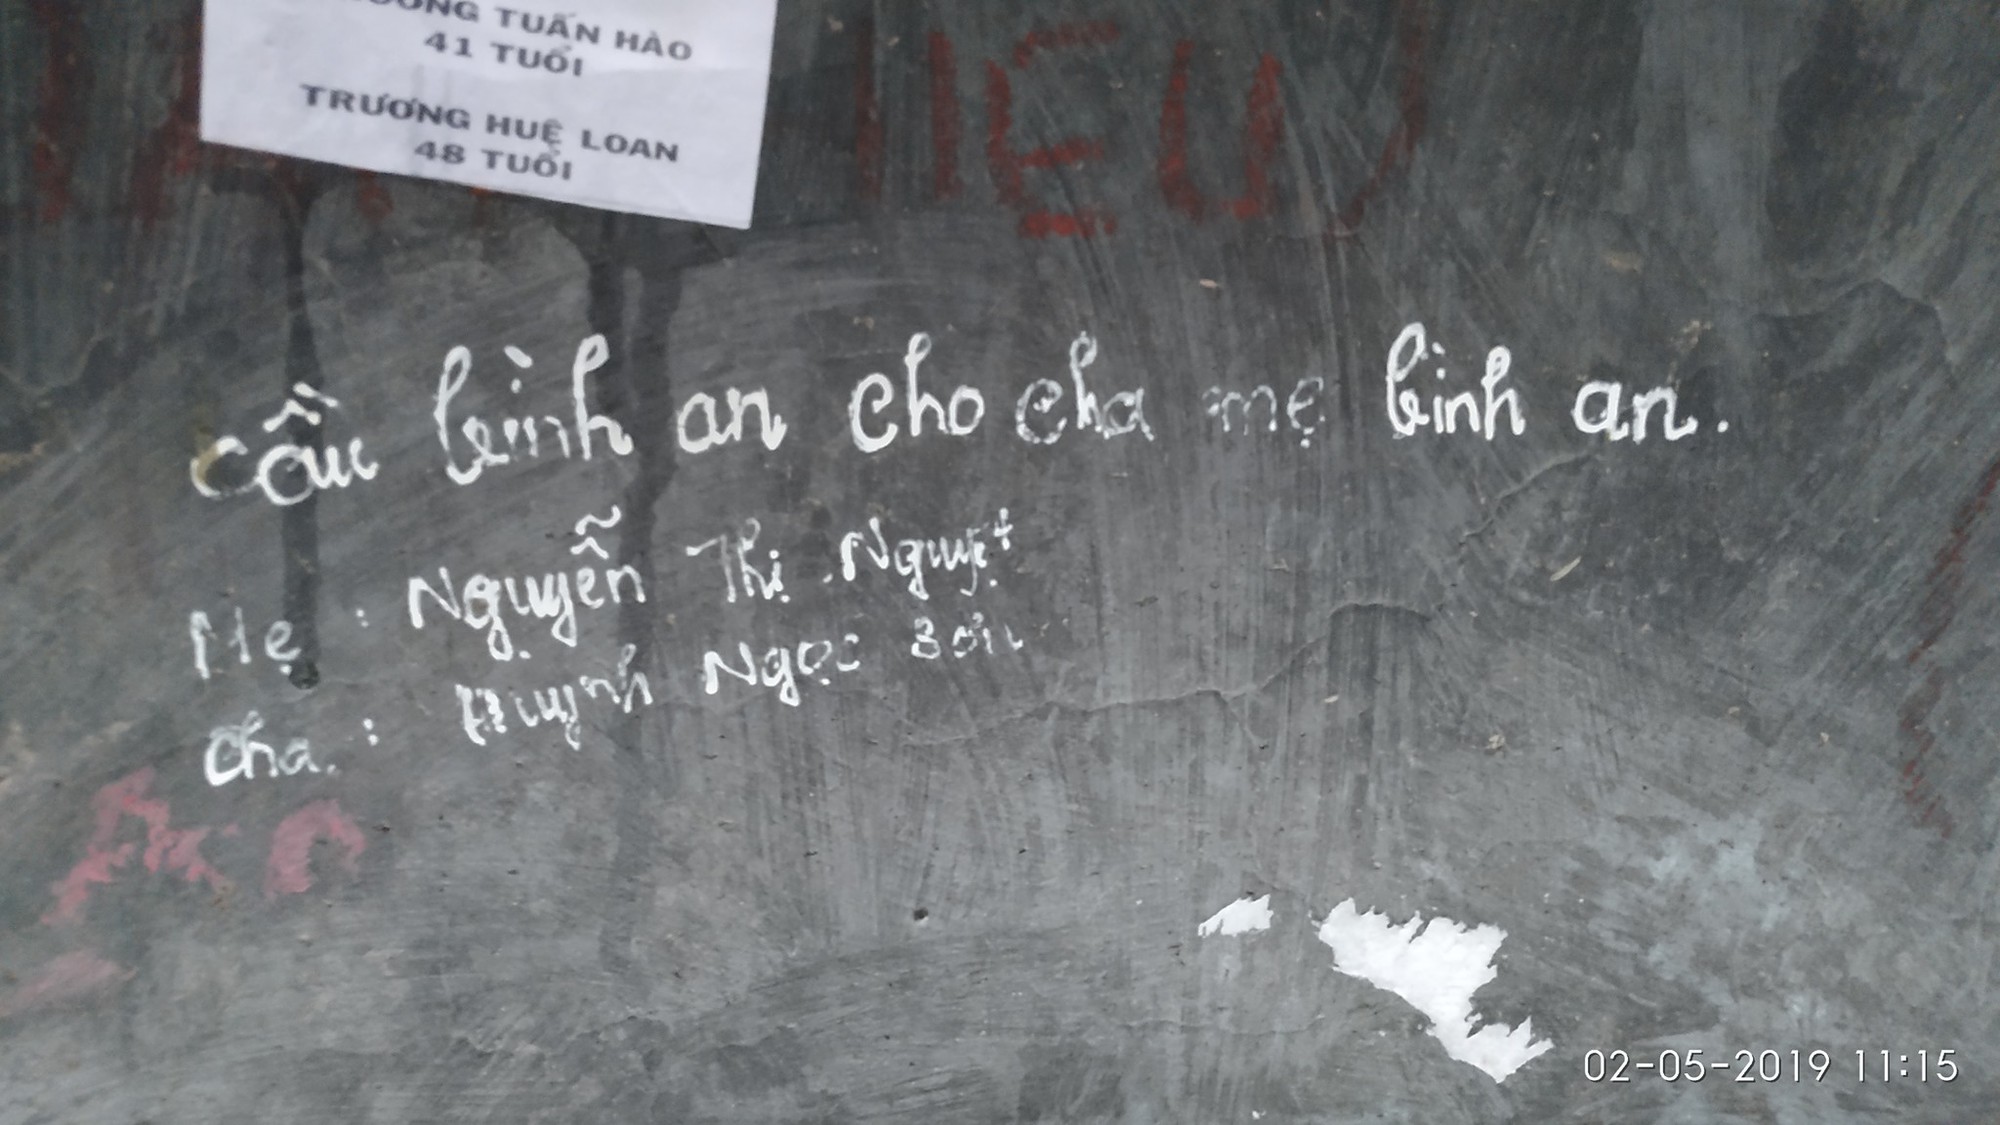 TUẤN HÀO
41 TUỔI
TRƯƠNG HUỆ LOAN
48 TUỔI
cầu bình an cho cha mẹ bình an.
Mẹ : Nguyễn Thị Nguyệt
Cha. : Huỳnh Ngọc Sơn
02-05-2019 11:15